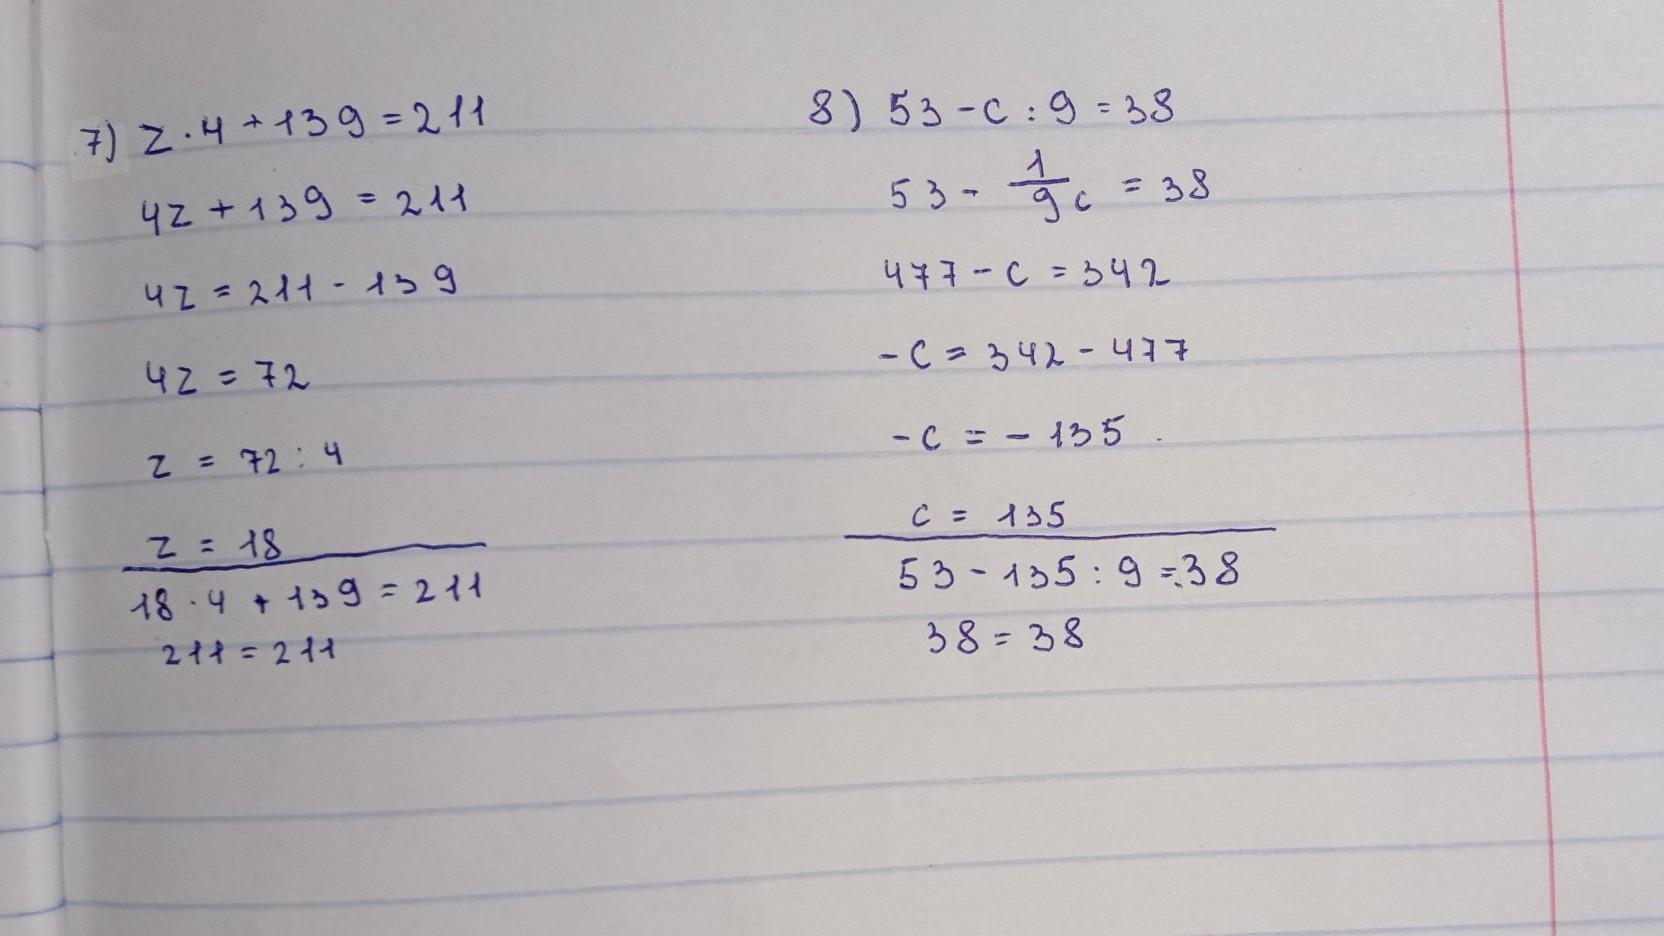 7) z · 4 + 139 = 211
4z + 139 = 211
4z = 211 - 139
4z = 72
z = 72 : 4
z = 18
18 · 4 + 139 = 211
211 = 211
8) 53 - c : 9 = 38
53 - 1/9 c = 38
477 - c = 342
-c = 342 - 477
-c = -135
c = 135
53 - 135 : 9 = 38
38 = 38